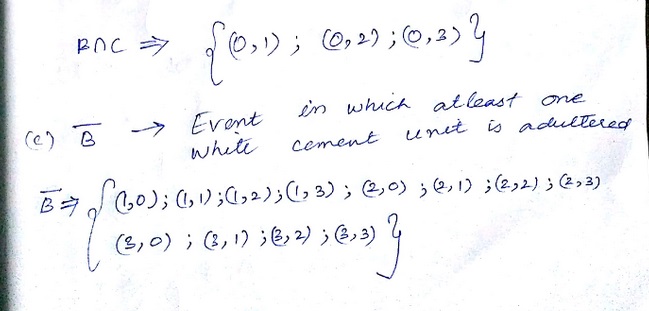 B∩C ⇒ {(0,1) ; (0,2) ; (0,3)}
(c) B̅ → Event in which atleast one
white cement unit is adultered
B̅ ⇒ {(1,0) ; (1,1) ; (1,2) ; (1,3) ; (2,0) ; (2,1) ; (2,2) ; (2,3)
(3,0) ; (3,1) ; (3,2) ; (3,3)}